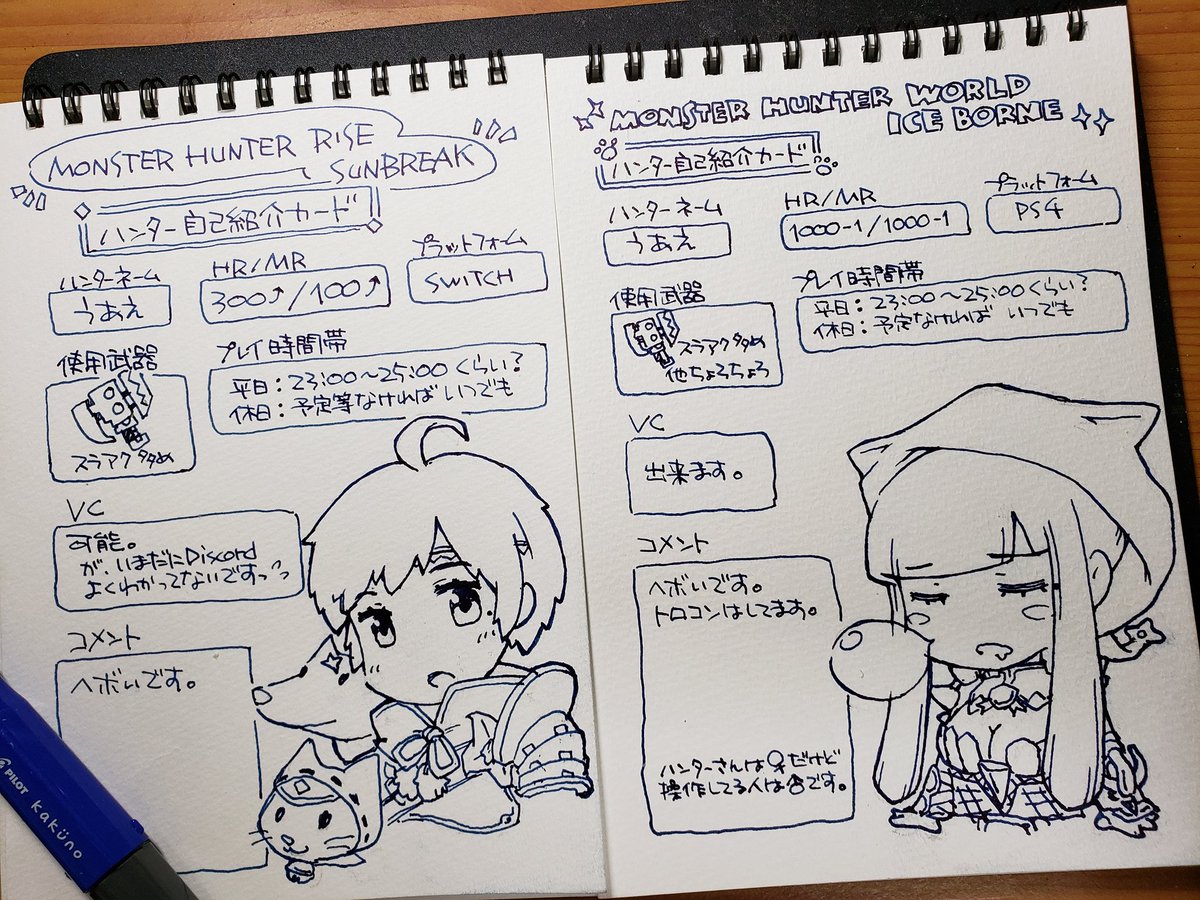 MONSTER HUNTER RISE
SUNBREAK
ハンター自己紹介カード
ハンターネーム
うあえ
HR/MR
300↑/100↑
プラットフォーム
SWITCH
使用武器
スラアク多め
プレイ時間帯
平日：23:00～25:00くらい?
休日：予定等なければ いつでも
VC
可能。
が、いまだにDiscord
よくわかってないですっ
コメント
ヘボいです。
PILOT kaküno
MONSTER HUNTER WORLD
ICE BORNE
ハンター自己紹介カード
ハンターネーム
うあえ
HR/MR
1000-1/1000-1
プラットフォーム
PS4
使用武器
スラアク多め
他ちょろちょろ
プレイ時間帯
平日：23:00～25:00くらい?
休日：予定なければ いつでも
VC
出来ます。
コメント
ヘボいです。
トロコンはしてます。
ハンターさんは♀だけど
操作してる人は♂です。